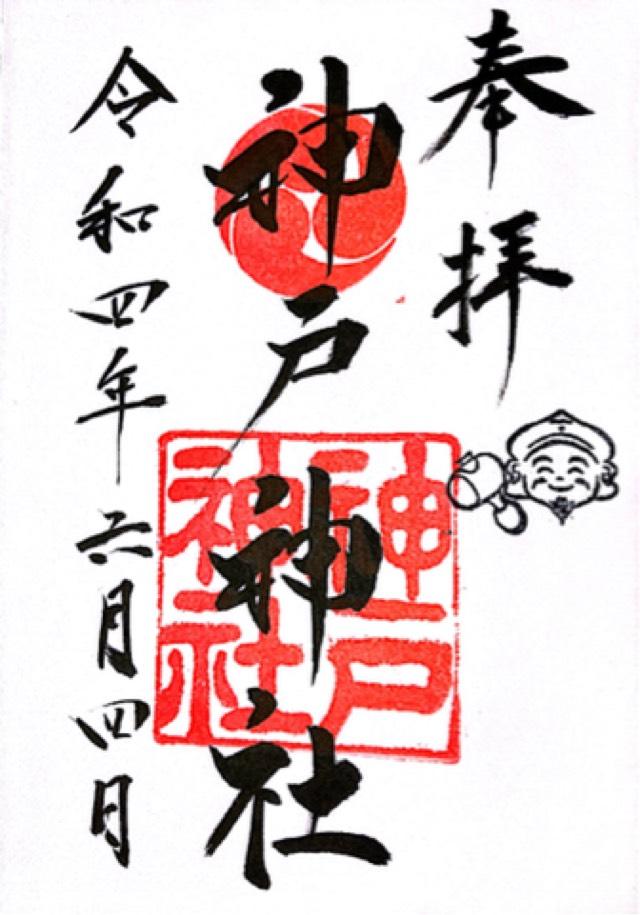 奉拝
神戸神社
神戸
神社
令和四年六月四日